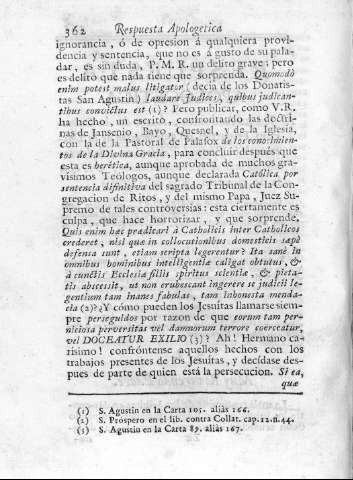 362 Respuesta Apologetica
ignorancia, ó de opresion á qualquiera provi-
dencia y sentencia, que no es á gusto de su pala-
dar, es sin duda, P. M. R. un delito grave; pero
es delito que nada tiene que sorprenda. Quomodò
enim potest malus litigator (decia de los Donatis-
tas San Agustin) laudare Judices, quibus judican-
tibus convictus est (1)? Pero publicar, como V.R.
ha hecho, un escrito, confrontando las doctri-
nas de Jansenio, Bayo, Quesnel, y de la Iglesia,
con la de la Pastoral de Palafox de los conocimien-
tos de la Divina Gracia, para concluir despues que
esta es herética, aunque aprobada de muchos gra-
visimos Teólogos, aunque declarada Católica por
sentencia difinitiva del sagrado Tribunal de la Con-
gregacion de Ritos, y del mismo Papa, Juez Su-
premo de tales controversias: esta ciertamente es
culpa, que hace horrorizar, y que sorprende.
Quis enim hæc prædicari à Catholicis inter Catholicos
crederet, nisi quæ in collocutionibus domesticis sæpè
defensa sunt, etiam scripta legerentur? Ita sanè in
omnibus hominibus intelligentiæ caligat obtutus, &
à cunctis Ecclesiæ filiis spiritus scientiæ, & pieta-
tis abscessit, ut non erubescant ingerere se judicii le-
gentium tam inanes fabulas, tam inhonesta menda-
cia (2)? ¿Y cómo pueden los Jesuitas llamarse siem-
pre perseguidos por razon de que eorum tam per-
niciosa perversitas vel damnorum terrore coerceatur,
vel DOCEATUR EXILIO (3)? Ah! Hermano ca-
risimo! confróntense aquellos hechos con los
trabajos presentes de los Jesuitas, y decídase des-
pues de parte de quien está la persecucion. Si ea,
quæ
(1) S. Agustin en la Carta 105. aliàs 166.
(2) S. Prospero en el lib. contra Collat. cap.12.n.44.
(3) S. Agustin en la Carta 89. aliàs 167.